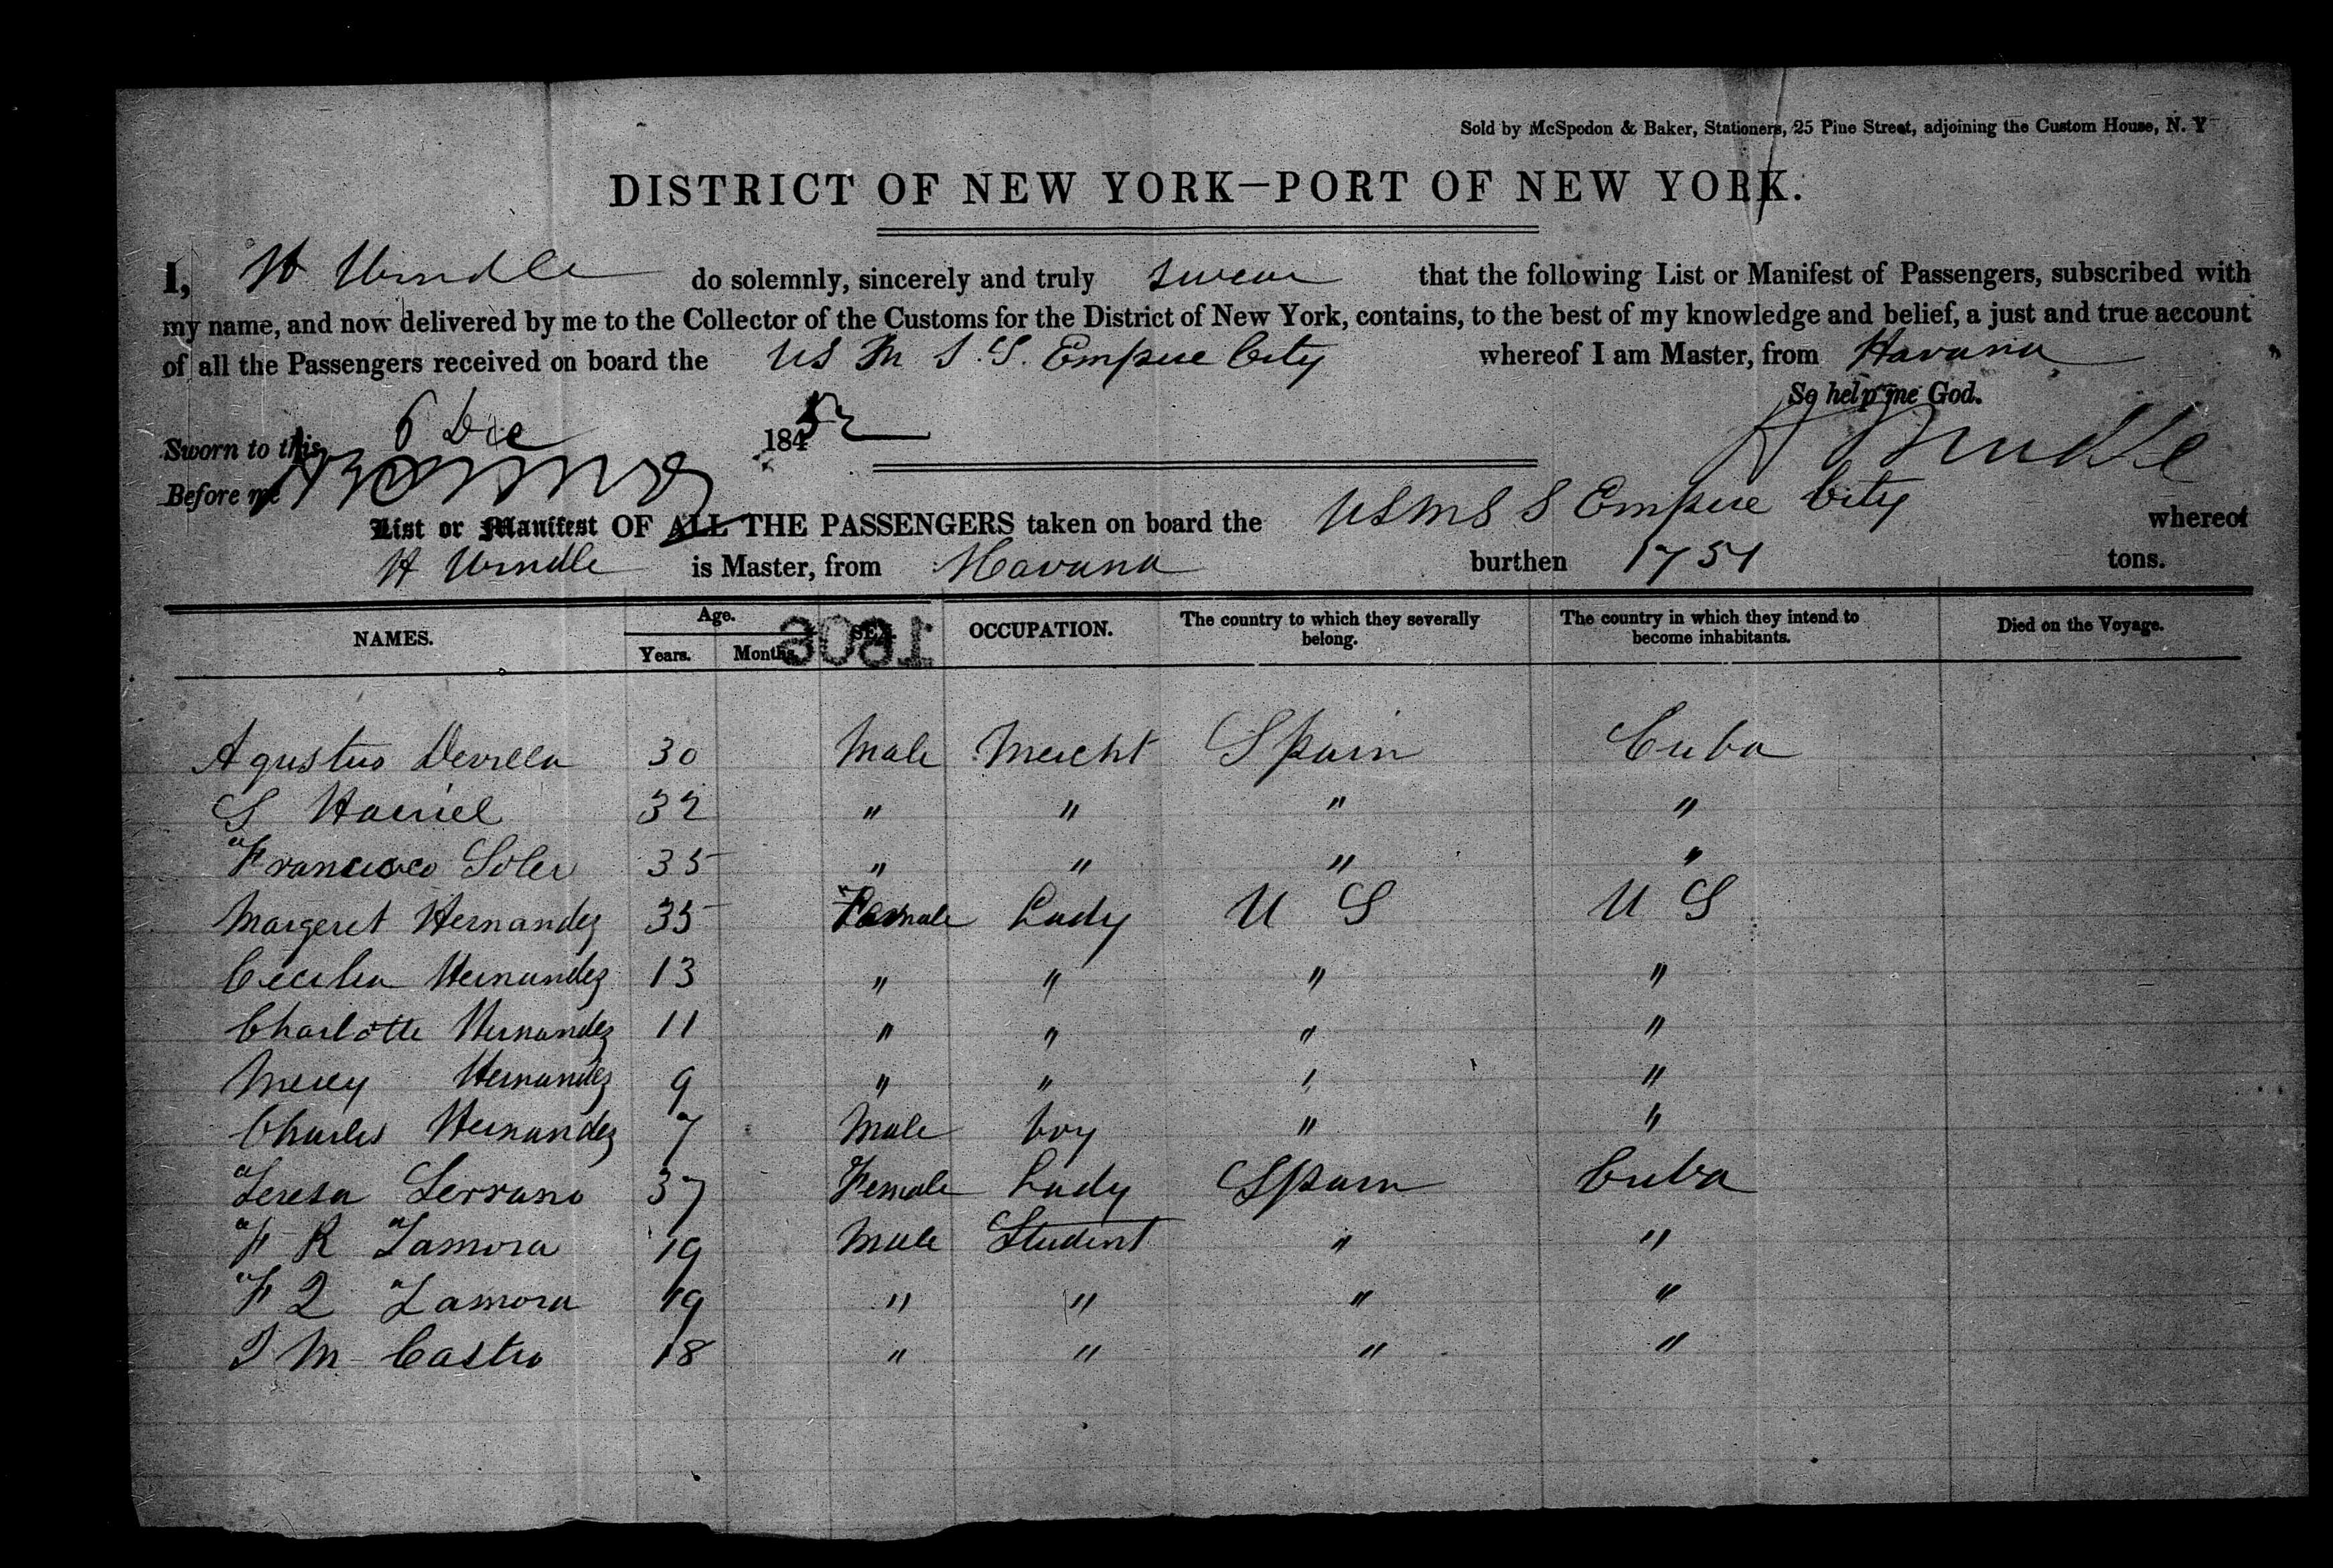 Sold by McSpedon & Baker, Stationers, 25 Pine Street, adjoining the Custom House, N. Y
DISTRICT OF NEW YORK—PORT OF NEW YORK.
I, H Windle do solemnly, sincerely and truly swear that the following List or Manifest of Passengers, subscribed with
my name, and now delivered by me to the Collector of the Customs for the District of New York, contains, to the best of my knowledge and belief, a just and true account
of all the Passengers received on board the US M S.S. Empire City whereof I am Master, from Havana
So help me God.
Sworn to this 6 Dec 1852
H Windle
Before me
List or Manifest OF ALL THE PASSENGERS taken on board the USMS S Empire City whereof
H Windle is Master, from Havana burthen 1751 tons.
NAMES. Age. Years. Months. SEX. OCCUPATION. The country to which they severally belong. The country in which they intend to become inhabitants. Died on the Voyage.
1808
Agustus 30 Male Mercht Spain Cuba
S 32 " " " "
Francisco Soler 35 " " " "
Margeret Hernandez 35 Female Lady U S U S
Cecilia Hernandez 13 " " " "
Charlotte Hernandez 11 " " " "
Mercy Hernandez 9 " " " "
Charles Hernandez 7 Male boy " "
Teresa Serrano 37 Female Lady Spain Cuba
F R Zamora 19 Male Student " "
F Q Zamora 19 " " " "
J M Castro 18 " " " "